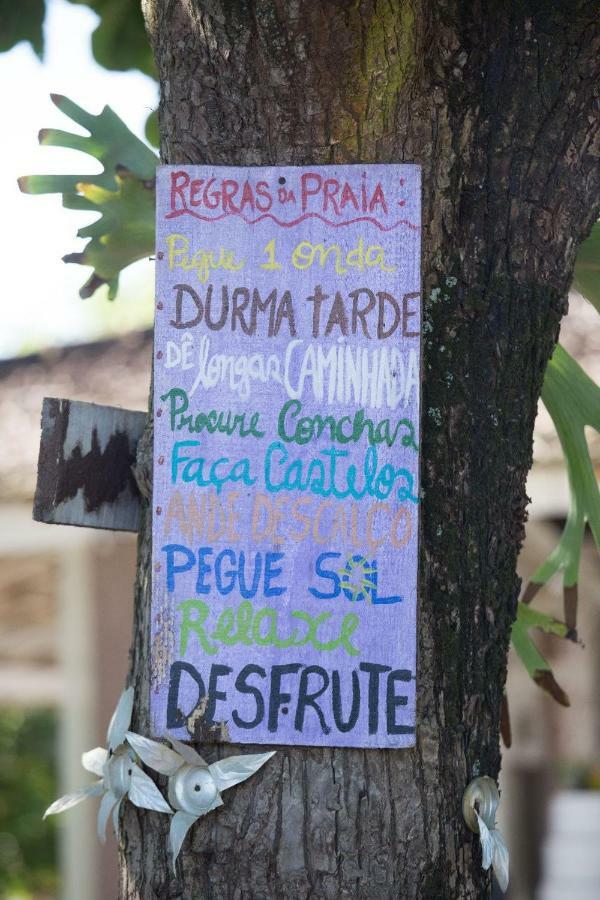 REGRAS DA PRAIA:
Pegue 1 onda
DURMA TARDE
DÊ longas CAMINHADA
Procure Conchas
Faça Castelos
ANDE DESCALÇO
PEGUE SOL
Relaxe
DESFRUTE